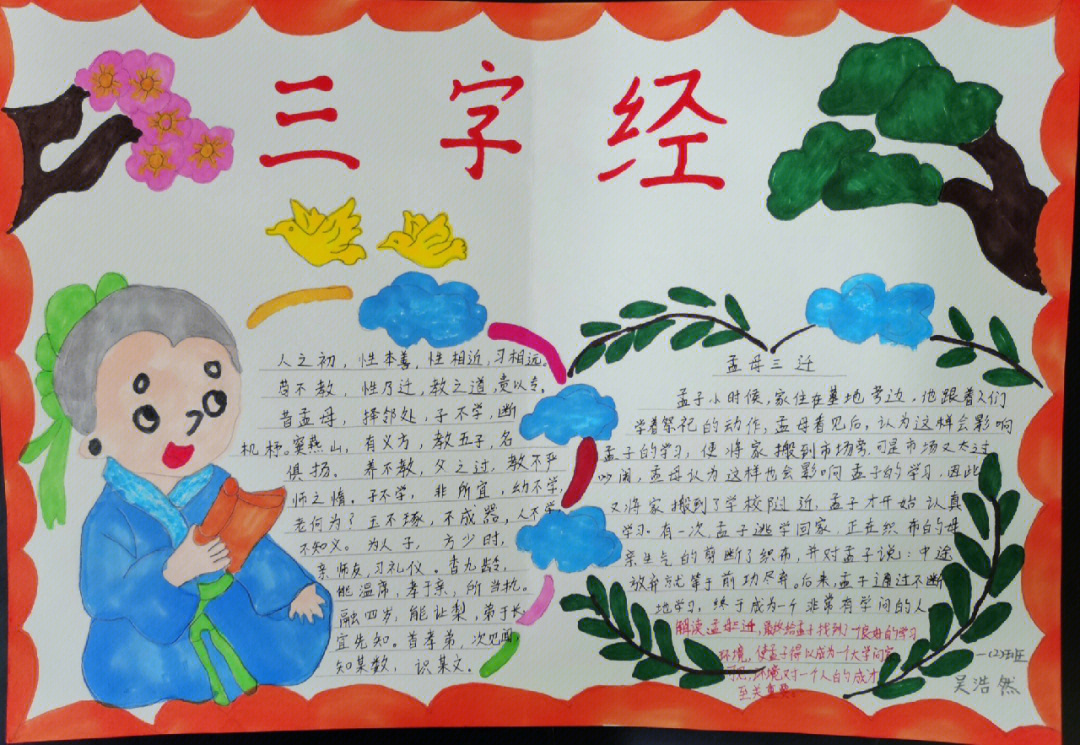 三字经
人之初，性本善，性相近，习相远。
苟不教，性乃迁，教之道，贵以专。
昔孟母，择邻处，子不学，断
机杼。窦燕山，有义方，教五子，名
俱扬。养不教，父之过，教不严
师之惰。子不学，非所宜，幼不学，
老何为？玉不琢，不成器，人不学
不知义。为人子，方少时，
亲师友，习礼仪。香九龄，
能温席，孝于亲，所当执。
融四岁，能让梨，弟于长，
宜先知。首孝弟，次见闻
知某数，识某文。
孟母三迁
孟子小时候，家住在墓地旁边，他跟着人们
学着祭祀的动作，孟母看见后，认为这样会影响
孟子的学习，便将家搬到市场旁，可是市场又太过
吵闹，孟母认为这样也会影响孟子的学习，因此
又将家搬到了学校附近，孟子才开始认真
学习。有一次，孟子逃学回家，正在织布的母
亲生气的剪断了织布，并对孟子说：中途
放弃就等于前功尽弃。后来，孟子通过不断
地学习，终于成为一个非常有学问的人
解读孟母三迁，最终给孟子找到了良好的学习
环境，使孟子得以成为一个大学问家
可见，环境对一个人的成才
至关重要。
一(2)班
吴浩然